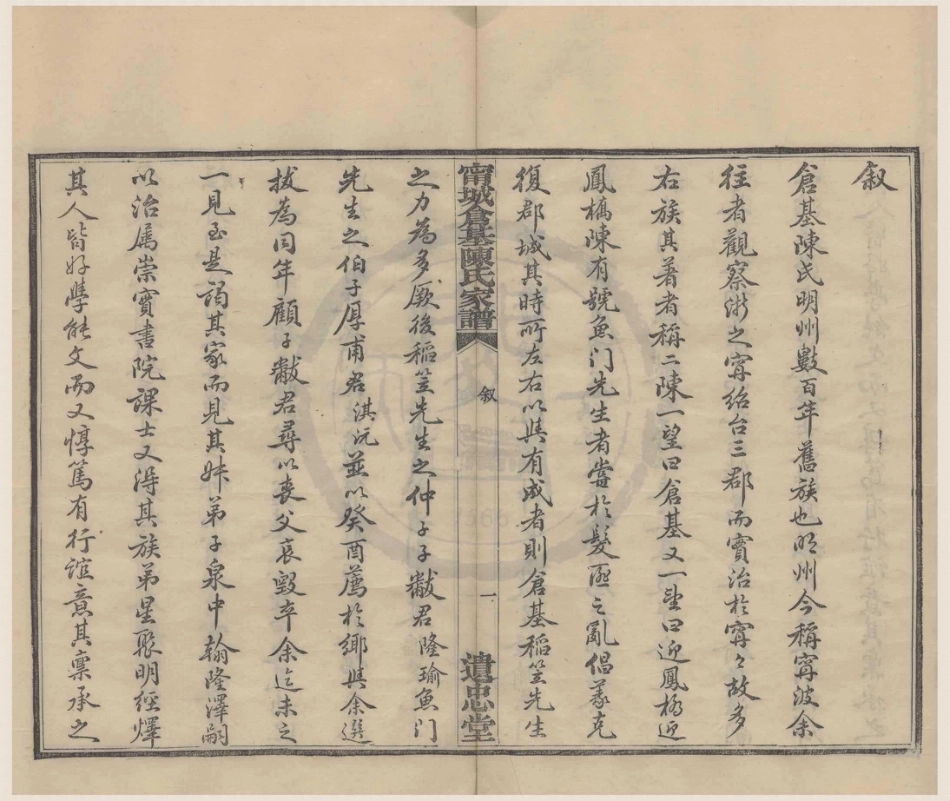 叙
倉基陳氏明州數百年舊族也明州今稱甯波余
往者觀察浙之甯紹台三郡而實治於甯々故多
右族其著者稱二陳一望曰倉基又一望曰迎鳳橋迎
鳳橋陳有號魚门先生者嘗於髮匪之亂倡義克
復郡城其時所左右以與有成者則倉基稻笠先生
甯城倉基陳氏家譜
叙
一
遺忠堂
之力為多厥後稻笠先生之仲子子黻君隆瑜魚门
先生之伯子厚甫君淇沅並以癸酉薦於鄉與余選
拔為同年顧子黻君尋以喪父哀毀卒余迄未之
一見至是謁其家而見其妹弟子泉中翰隆澤嗣
以治屬崇實書院課士又得其族弟星聚明經燡
其人皆好學能文而又惇篤有行誼意其稟承之